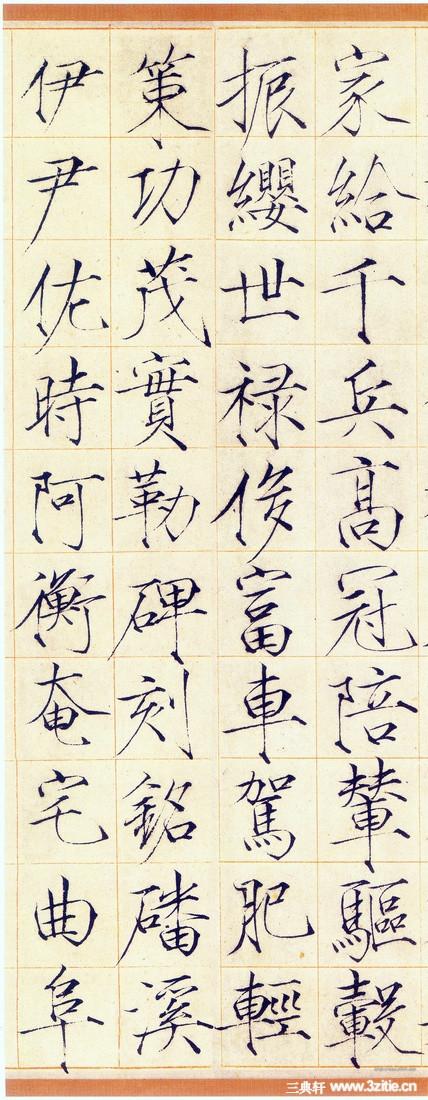 家給千兵高冠陪輦驅轂
振纓世禄侈富車駕肥輕
策功茂實勒碑刻銘磻溪
伊尹佐時阿衡奄宅曲阜
三典轩 www.3zitie.cn